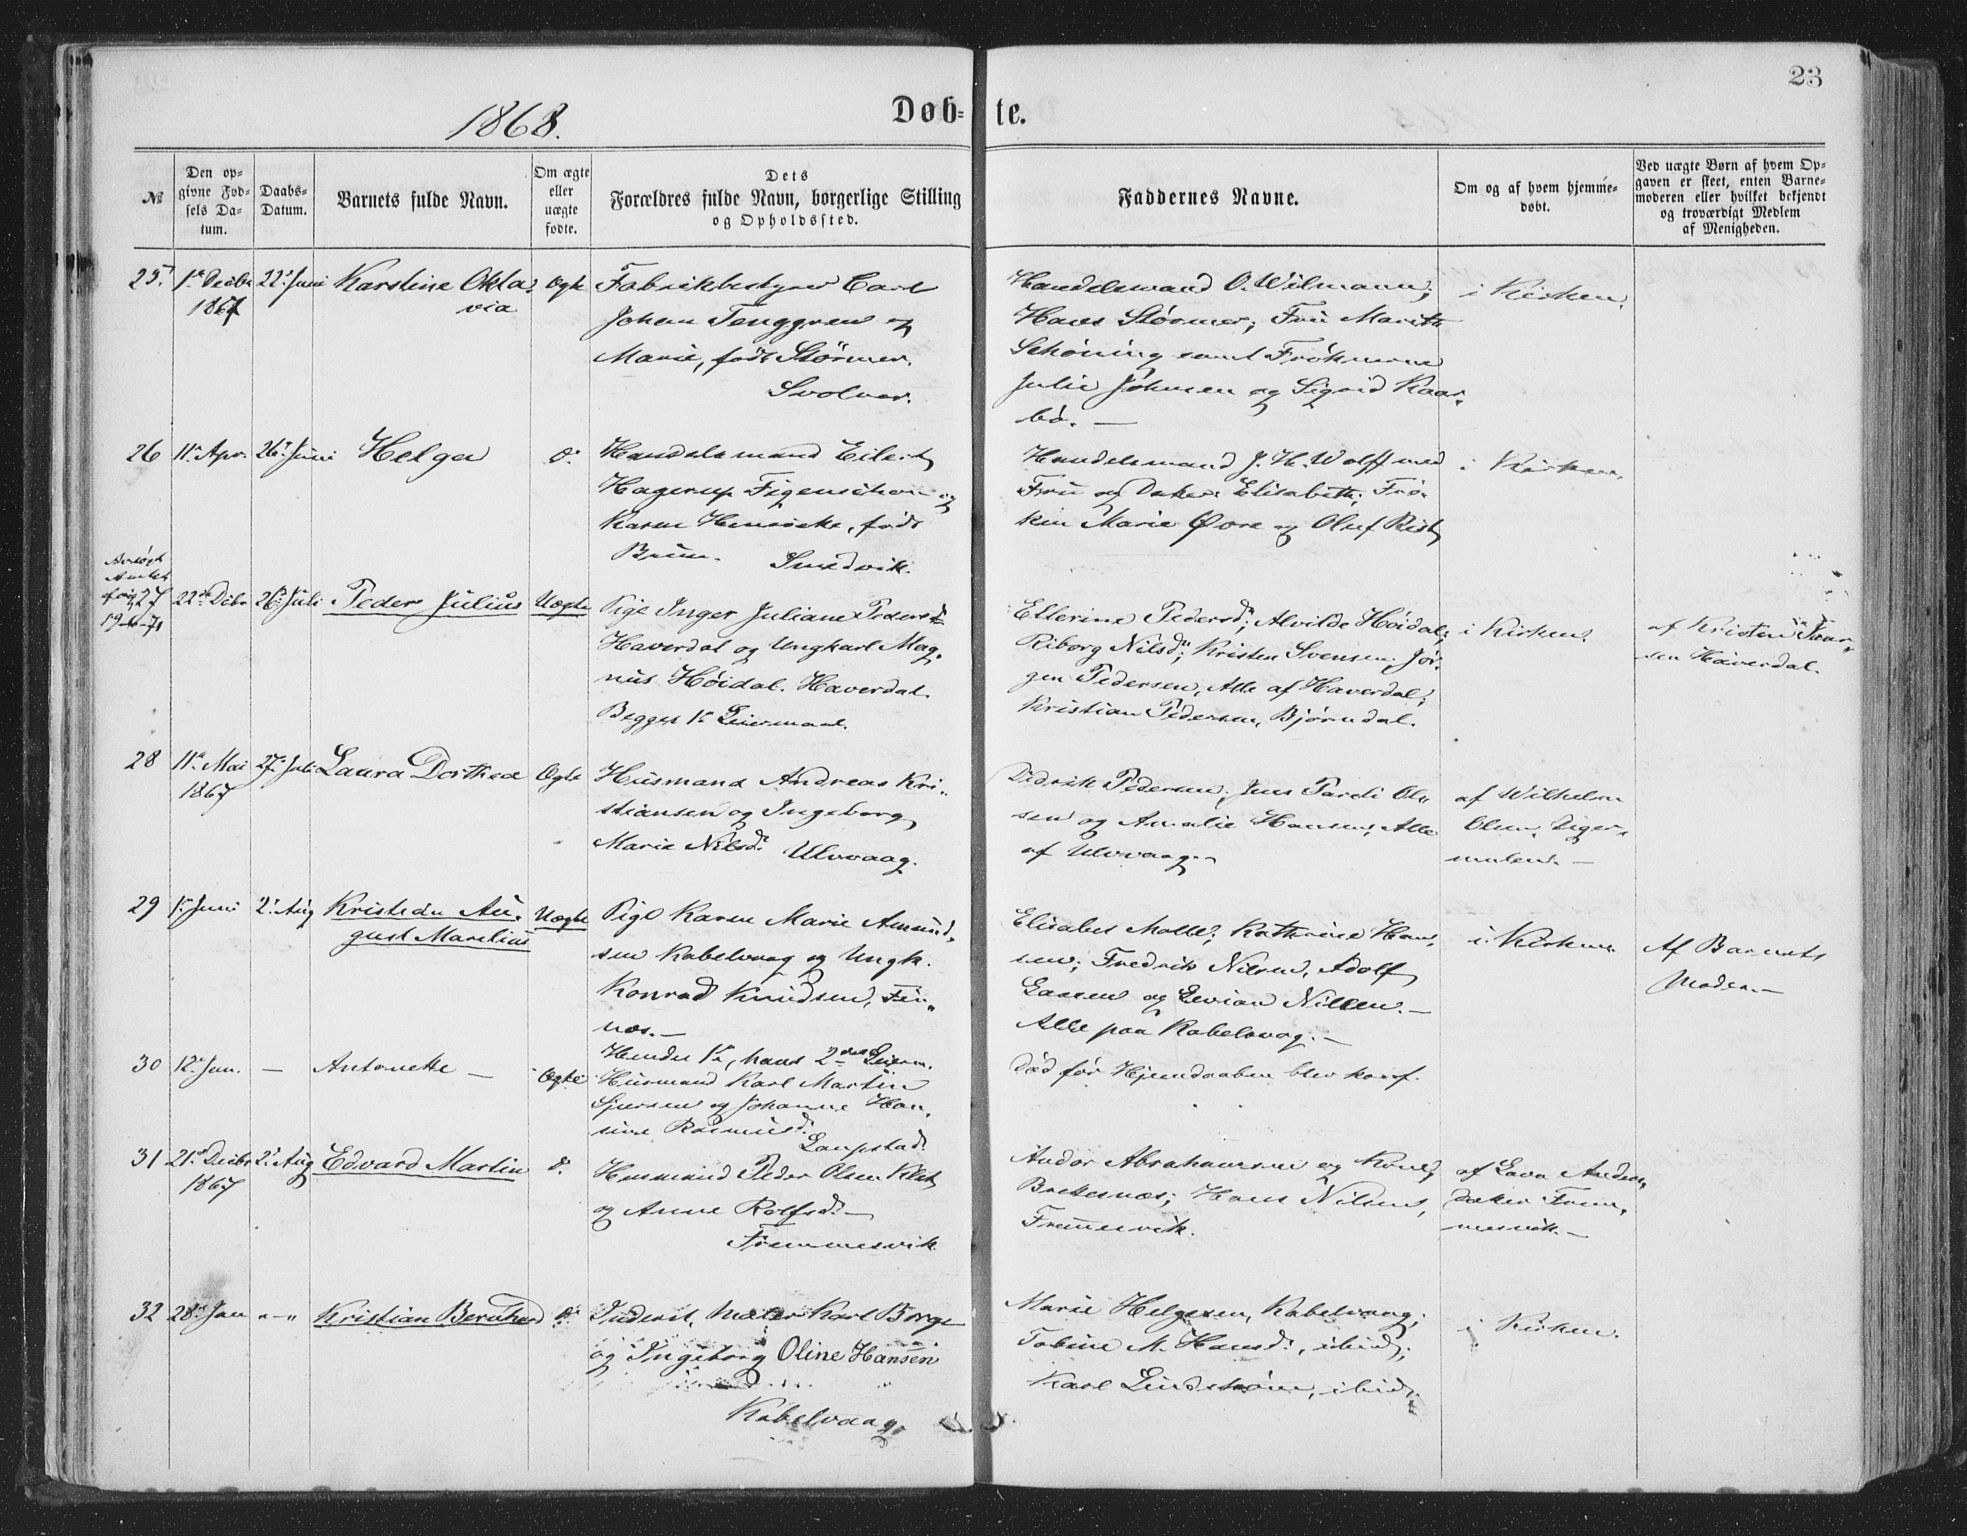 23
1868.
Døb= te.
№
Den op=
givne Fød=
sels Da=
tum.
Daabs=
Datum.
Barnets fulde Navn.
Om ægte
eller
uægte
fødte.
Dets
Forældres fulde Navn, borgerlige Stilling
og Opholdssted.
Faddernes Navne.
Om og af hvem hjemme=
døbt.
Ved uægte Børn af hvem Op=
gaven er skeet, enten Barne=
moderen eller hvilket bekjendt
og troværdigt Medlem
af Menigheden.
25. 1. Decbr 1867 22. Juni Karstine Okta=
via Ægte
Fabrikbestyrer Carl
Johan Tenggren og
Marie, født Størmer.
Svolvær.
Handelsmand O. Wilmann;
Hans Størmer; Fru Marith
Schöning samt Frøknerne
Julie Johnsen og Sigrid Kaar=
bö. —
i Kirken.
26 11. Apr. 26. Juni Helga d:
Handelsmand Eilert
Hagerup Figenschou og
Karen Henrikke, født
Bruun. Smedvik.
Handelsmand J. H. Wolff med
Fru og Datter Elisabeth; Frø=
ken Marie Øvre og Oluf Rist
i Kirken.
27 22. Dcbr 26. Juli Peder Julius Uægte
19-6-71
Pige Inger Juliane Pedersd.
Haverdal og Ungkarl Mag=
nus Høidal. Haverdal.
Begges 1. Leiermaal.
Ellerine Pedersd.; Alvilde Høidal;
Riborg Nilsd.; Kristen Svensen; Jör=
gen Pedersen, Alle af Haverdal;
Kristian Pedersen, Bjørndal.
i Kirken.
af Kristen Ivar=
sen Haverdal.
28 11. Mai 1867 27. Juli Laura Dorthea Ægte
Husmand Andreas Kri=
stiansen og Ingeborg
Marie Nilsd. Ulvvaag.
Didrik Pedersen; Jens Pareli Ol=
sen og Amalie Hansen, Alle
af Ulvvaag. —
af Wilhelm
Olsen, Diger=
mulen. —
29 1. Juni 2. Aug Kristian Au=
gust Marelius Uægte
Pige Karen Marie Amund=
sen Kabelvaag og Ungk.
Konrad Knudsen, Fin=
næs. —
Hendes 1., hans 2det Leierm.
Elisabet Molle; Kathrine Han=
sen; Fredrik Nilsen, Adolf
Larsen og Nilsen. —
Alle paa Kabelvaag. —
i Kirken
Af Barnets
Moder. —
30 12. Jun. — Antonette — Ægte
Husmand Karl Martin
Sjursen og Johanne Han=
sine Rasmusd.
Laupstad
Død før Hjemdaaben blev konf.
31 21. Decbr 1867 2. Aug Edvard Martin d.
Husmand Peder Olsen
og Anne Rolfsd. —
Framnesvik
Andor Abrahamsen og Kone,
Brekesnæs; Hans Nilsen,
Framnesvik.
af Lava Anders=
datter Fram=
nesvik. —
32 28. Jan " — " Kristian Bernhard d:
Inderst, Maler Karl Borge
og Ingeborg Oline Hansen
Kabelvaag.
Marie Helgesen, Kabelvaag;
Tobine M. Hansd., ibid;
Karl Lindstrøm, ibid.
i Kirken.